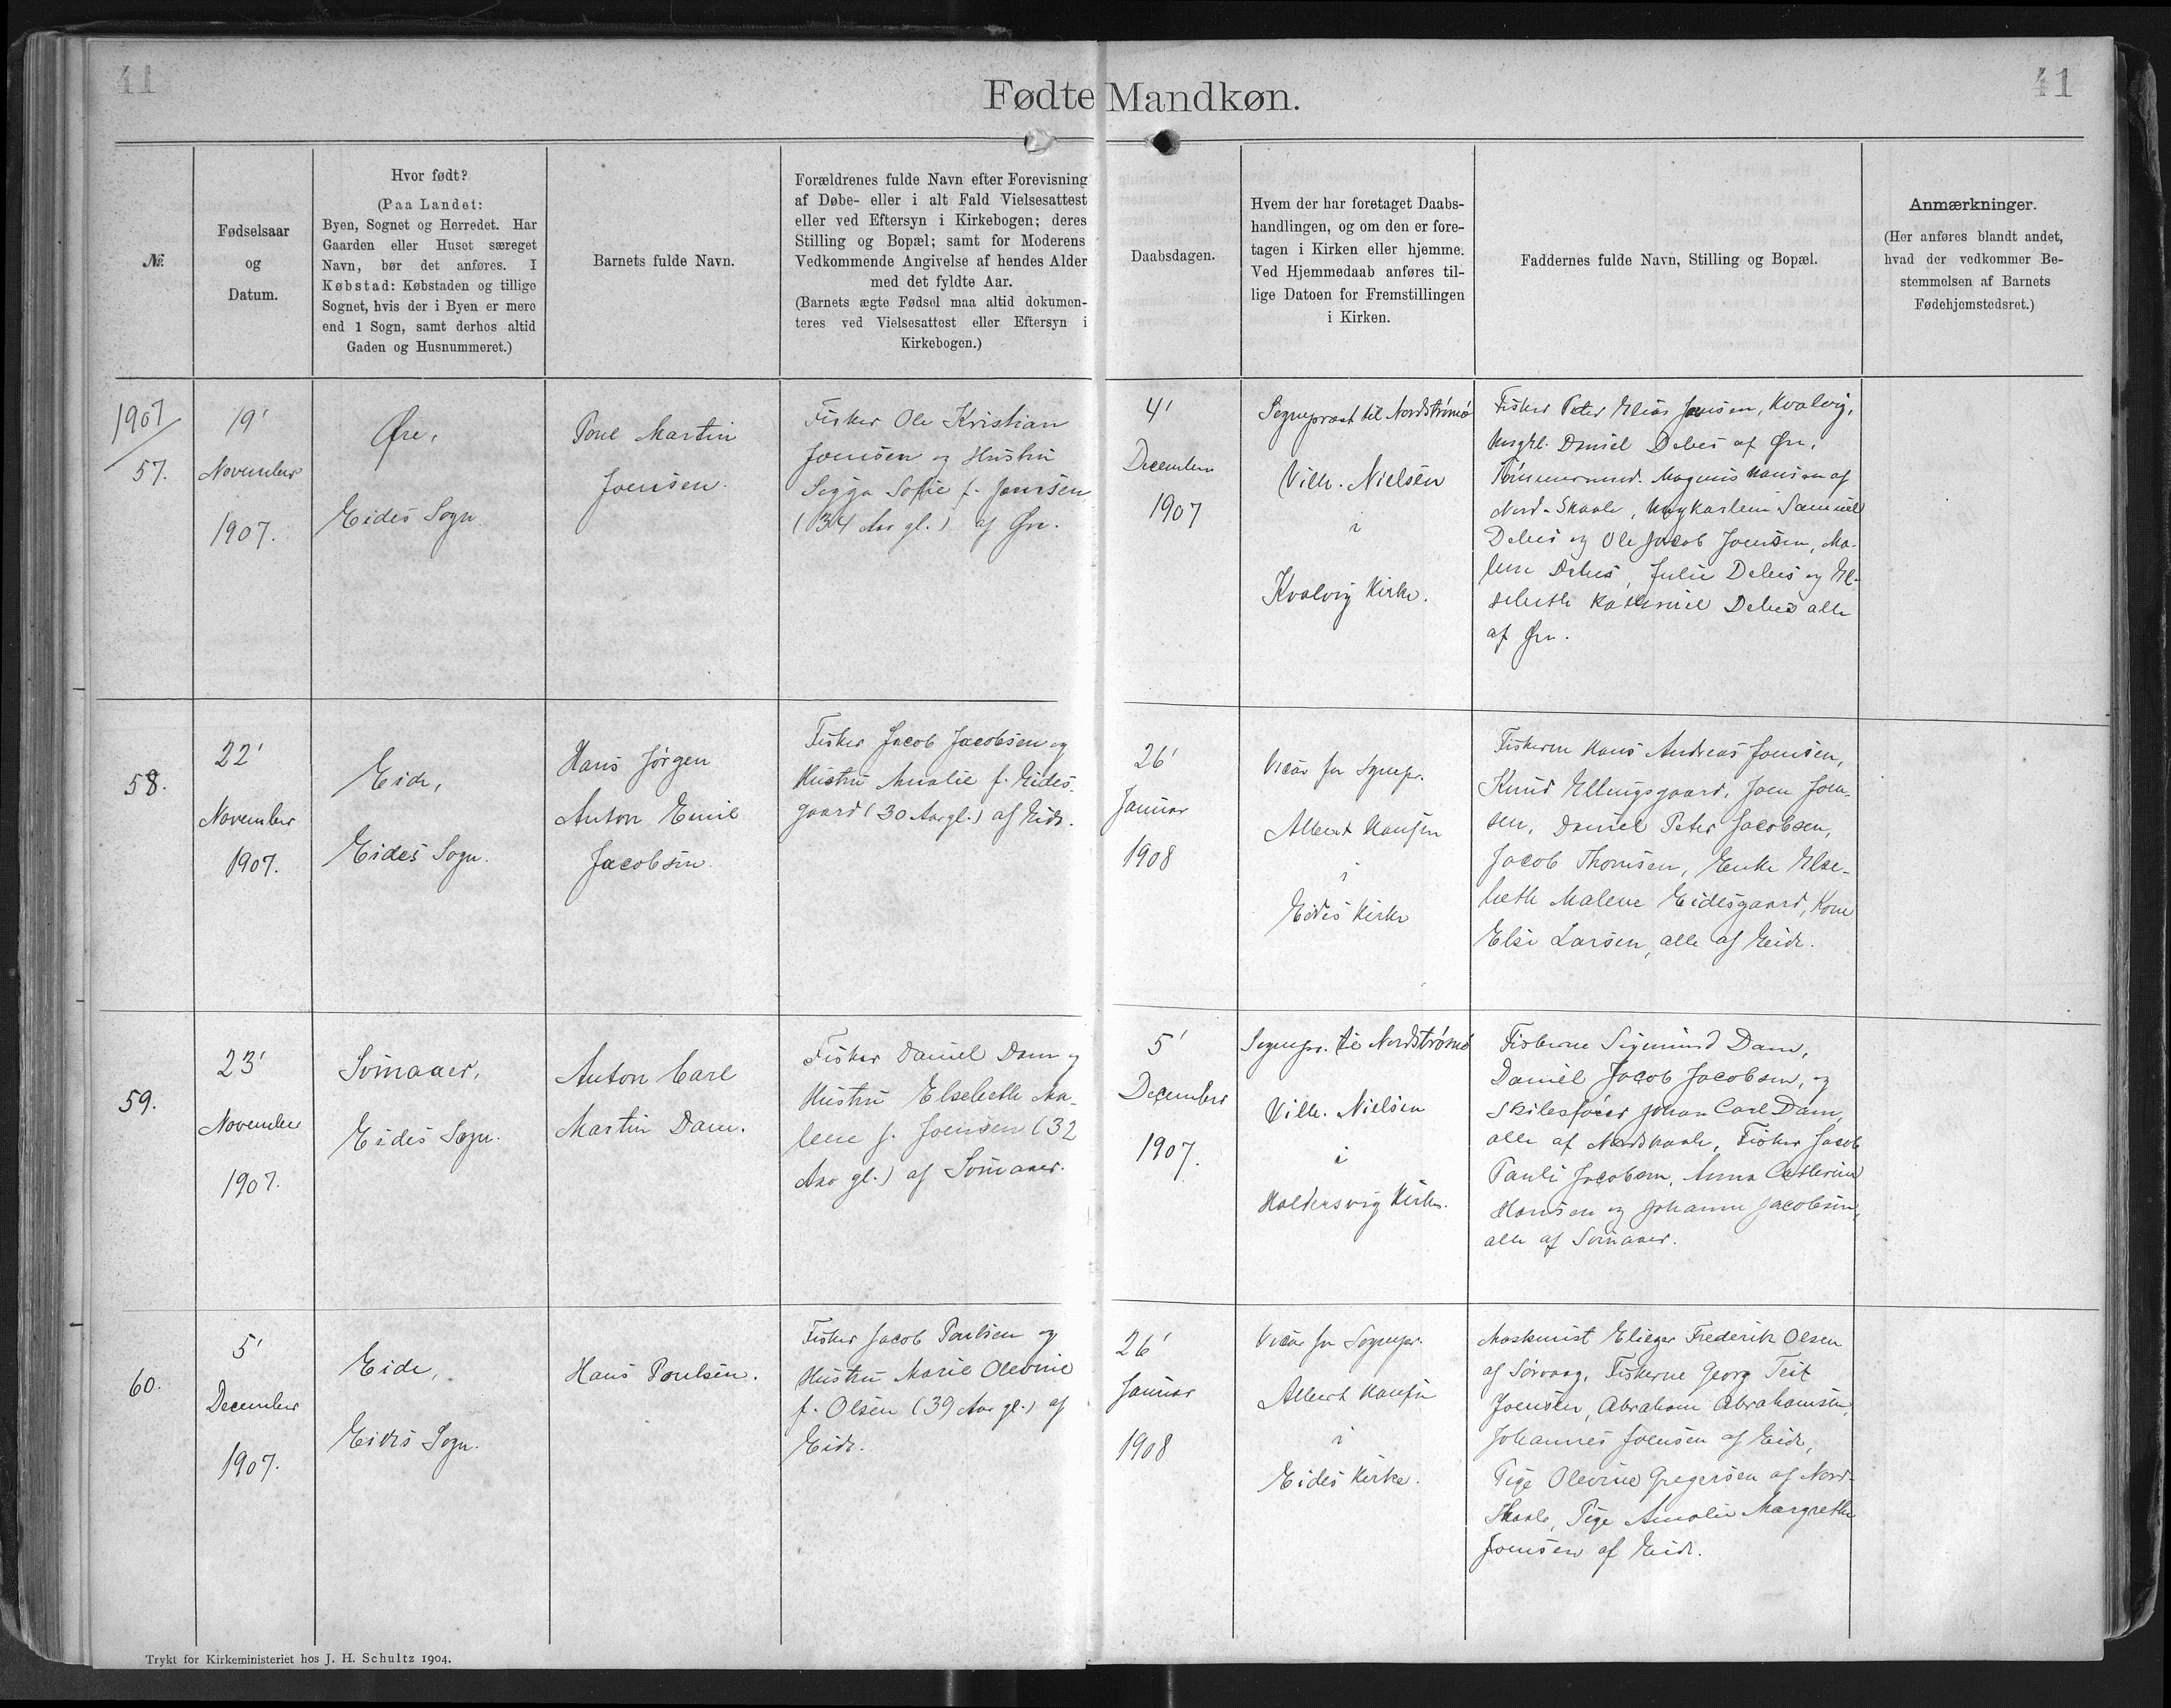 41
41
Fødte Mandkøn.
№
Fødselsaar
og
Datum.
Hvor født?
(Paa Landet:
Byen, Sognet og Herredet. Har
Gaarden eller Huset særeget
Navn, bør det anføres. I
Købstad: Købstaden og tillige
Sognet, hvis der i Byen er mere
end 1 Sogn, samt derhos altid
Gaden og Husnummeret.)
Barnets fulde Navn.
Forældrenes fulde Navn efter Forevisning
af Døbe- eller i alt Fald Vielsesattest
eller ved Eftersyn i Kirkebogen; deres
Stilling og Bopæl; samt for Moderens
Vedkommende Angivelse af hendes Alder
med det fyldte Aar.
(Barnets ægte Fødsel maa altid dokumen-
teres ved Vielsesattest eller Eftersyn i
Kirkebogen.)
Daabsdagen.
Hvem der har foretaget Daabs-
handlingen, og om den er fore-
tagen i Kirken eller hjemme.
Ved Hjemmedaab anføres til-
lige Datoen for Fremstillingen
i Kirken.
Faddernes fulde Navn, Stilling og Bopæl.
Anmærkninger.
(Her anføres blandt andet,
hvad der vedkommer Be-
stemmelsen af Barnets
Fødehjemstedsret.)
1907
57.
19'
November
1907.
Øre,
Eides Sogn.
Poul Martin
Joensen.
Fisker Ole Kristian
Joensen og Hustru
Sigga Sofie f. Joensen
(34 Aar gl.) af Øre.
4'
December
1907
Sognepræst til Nordstrømø
Vilh. Nielsen
i
Kvalvig Kirke.
Fisker Peter Elias Joensen, Kvalvig,
Ungkl. Daniel Debes af Øre,
Tømmermd. Magnus Hansen af
Nord-Skaale, Ungkarlene Samuel
Debes og Ole Jacob Joensen, Ma-
lene Debes, Julie Debes og El-
sebeth Debes alle
af Øre.
58.
22'
November
1907.
Eide,
Eides Sogn.
Hans Jørgen
Anton Emil
Jacobsen.
Fisker Jacob Jacobsen og
Hustru Amalie f. Eides-
gaard (30 Aar gl.) af Eide.
26'
Januar
1908
Vicar for Sognepr.
Albert Hansen
i
Eides Kirke
Fiskerne Hans Andreas Joensen,
Knud Ellingsgaard, Joen Joen-
sen, Daniel Peter Jacobsen,
Jacob Thomsen, Enke Else-
beth Malene Eidesgaard, Kone
Else Larsen, alle af Eide.
59.
23'
November
1907.
Svinaaer,
Eides Sogn.
Anton Carl
Martin Dam.
Fisker Daniel Dam og
Hustru Elsebeth Ma-
lene f. Joensen (32
Aar gl.) af Svinaaer.
5'
December
1907.
Sognepr. til Nordstrømø
Vilh. Nielsen
i
Haldersvig Kirke.
Fiskerne Sigmund Dam,
Daniel Jacob Jacobsen, og
Skibsfører Johan Carl Dam,
alle af Nordskaale, Fisker Jacob
Pauli Jacobsen, Anna Cathrine
Hansen og Johanne Jacobsen,
alle af Svinaaer.
60.
5'
December
1907.
Eide,
Eides Sogn.
Hans Poulsen.
Fisker Jacob Poulsen og
Hustru Marie Olevine
f. Olsen (39 Aar gl.) af
Eide.
26'
Januar
1908
Vicar for Sognepr.
Albert Hansen
i
Eides Kirke.
Maskinist Eliezer Frederik Olsen
af Sørvaag, Fiskerne Georg Teit
Joensen, Abraham Abrahamsen,
Johannes Joensen af Eide,
Pige Olevine Gregersen af Nord-
Skaale, Pige Amalie Margrethe
Joensen af Eide.
Trykt for Kirkeministeriet hos J. H. Schultz 1904.